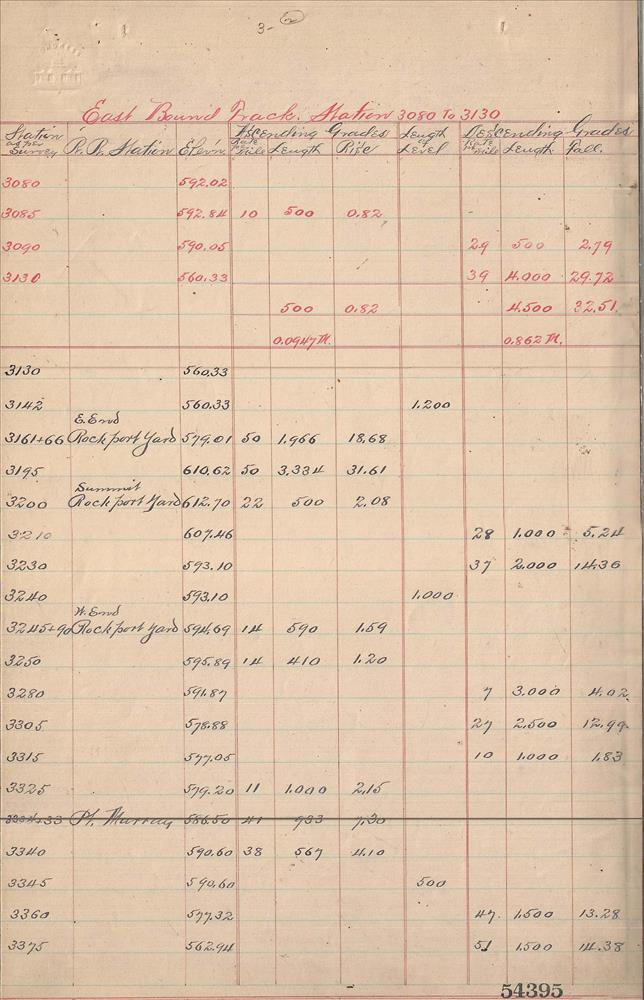 3-
East Bound Track. Station 3080 To 3130
Station as per Survey R. R. Station Elev'n Ascending Grades Rate per Mile Length Rise Length of Level Descending Grades Rate per Mile Length Fall.
3080 592.02
3085 592.84 10 500 0.82
3090 590.05 29 500 2.79
3130 560.33 39 4.000 29.72
500 0.82 4.500 32.51
0.0947 M. 0.862 M.
3130 560.33
3142 560.33 1.200
3161+66 E. End Rockport Yard 579.01 50 1.966 18.68
3195 610.62 50 3.334 31.61
3200 Summit Rockport Yard 612.70 22 500 2.08
3210 607.46 28 1.000 5.24
3230 593.10 37 2.000 14.36
3240 593.10 1.000
3245+90 W. End Rockport Yard 594.69 14 590 1.59
3250 595.89 14 410 1.20
3280 591.87 7 3.000 4.02
3305 578.88 27 2,500 12.99
3315 577.05 10 1.000 1.83
3325 579.20 11 1.000 2.15
3334+33 Pt. Murray 586.50 41 933 7.30
3340 590.60 38 567 4.10
3345 590.60 500
3360 577.32 47 1.500 13.28
3375 562.94 51 1.500 14.38
54395